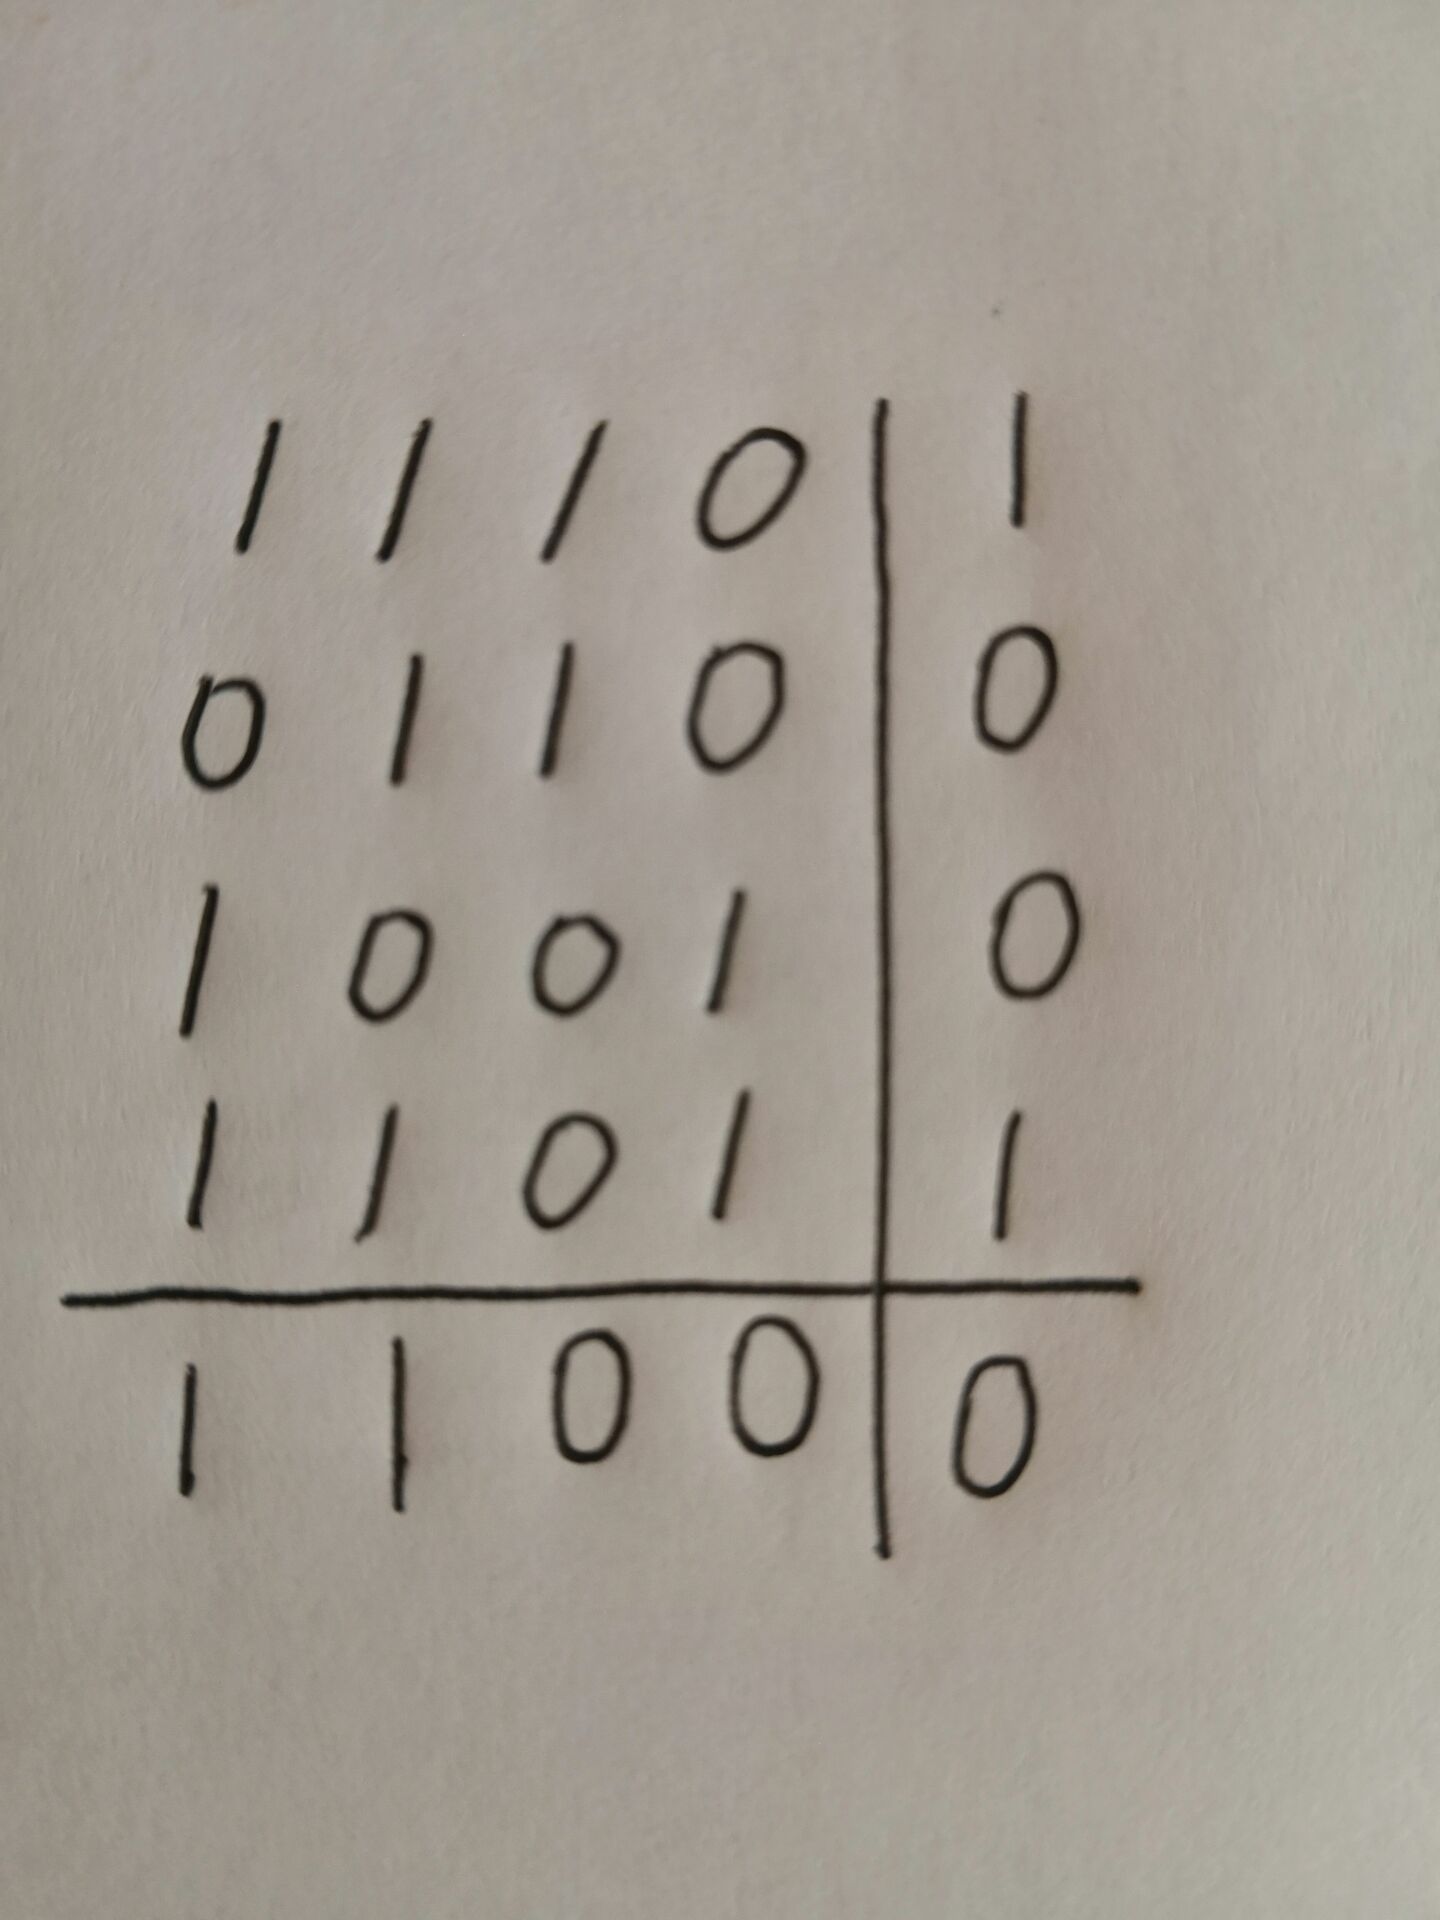 1 1 1 0 | 1
0 1 1 0 | 0
1 0 0 1 | 0
1 1 0 1 | 1
1 1 0 0 | 0